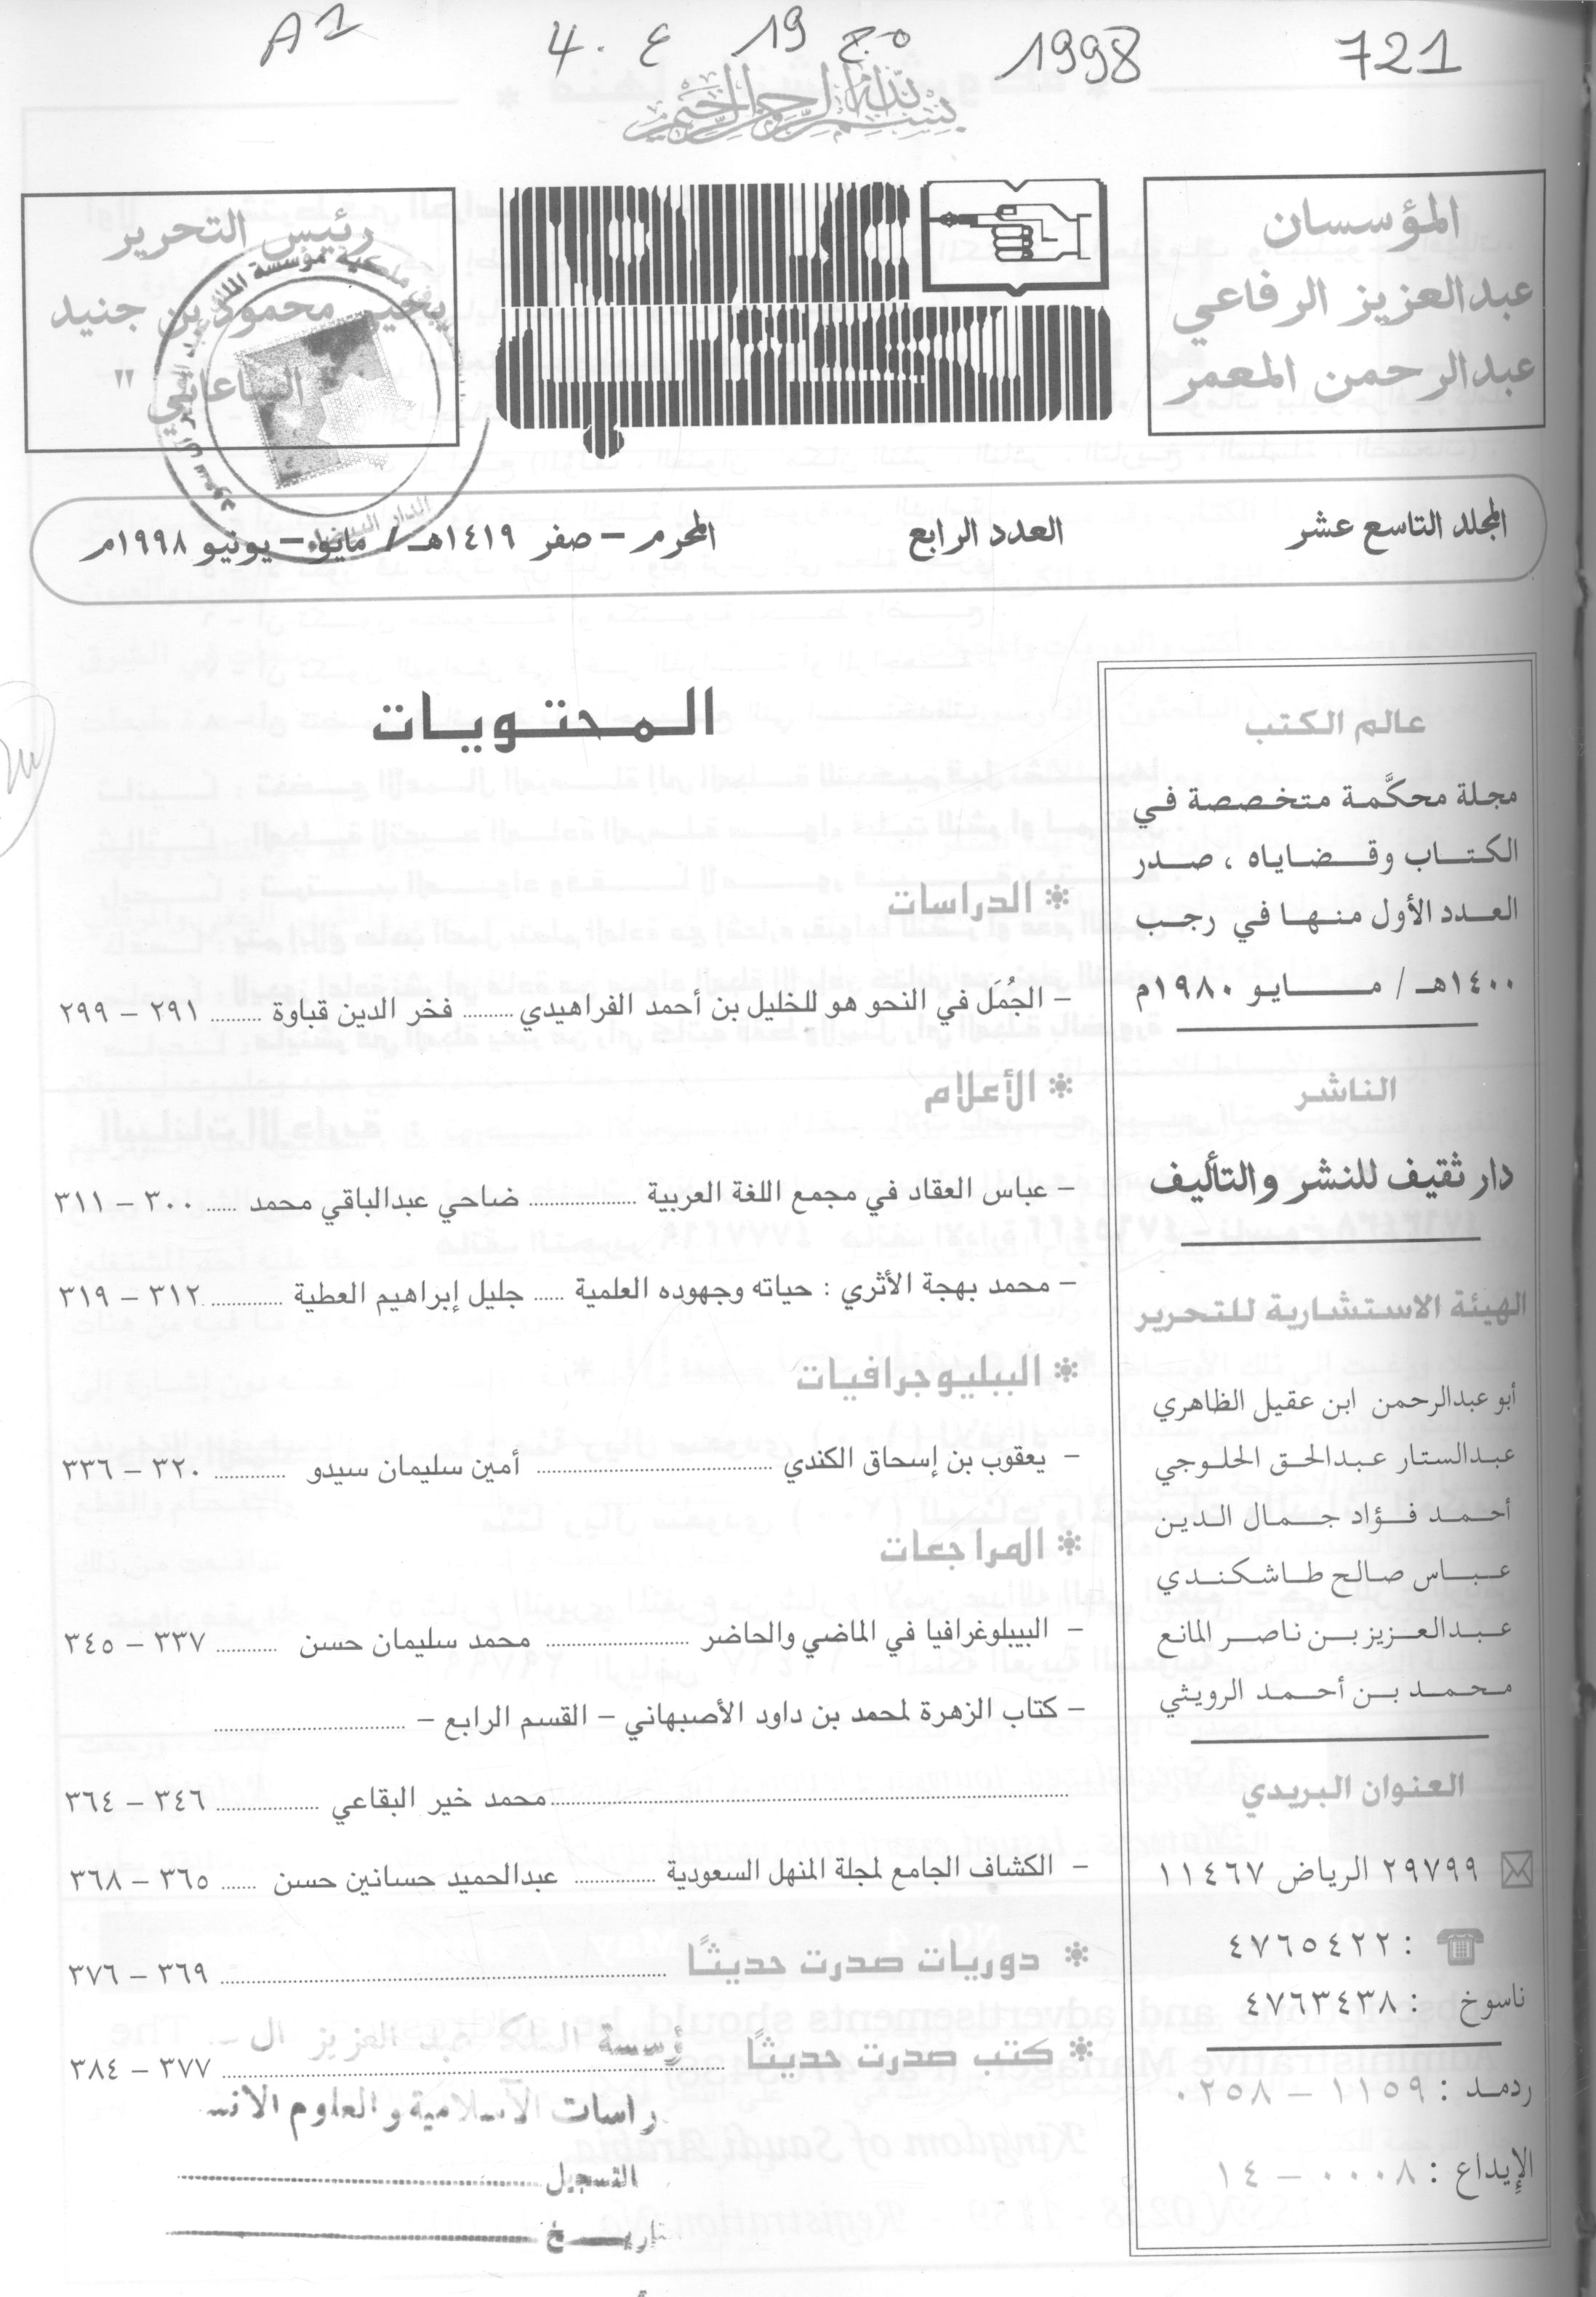 721 1998 مج 19 ع 4. A1
بسم الله الرحمن الرحيم
المؤسسان
عبدالعزيز الرفاعي
عبدالرحمن المعمر
عالم الكتب
رئيس التحرير
يحيى محمود بن جنيد
" الساعاتي "
المجلد التاسع عشر العدد الرابع المحرم – صفر ١٤١٩هـ / مايو – يونيو ١٩٩٨م
عالم الكتب
مجلة محكَّمة متخصصة في
الكتاب وقضاياه ، صدر
العدد الأول منها في رجب
١٤٠٠هـ / مايو ١٩٨٠م
الناشر
دار ثقيف للنشر والتأليف
الهيئة الاستشارية للتحرير
أبو عبدالرحمن ابن عقيل الظاهري
عبدالستار عبدالحق الحلوجي
أحمد فؤاد جمال الدين
عباس صالح طاشكندي
عبدالعزيز بن ناصر المانع
محمد بن أحمد الرويثي
العنوان البريدي
٢٩٧٩٩ الرياض ١١٤٦٧
: ٤٧٦٥٤٢٢
ناسوخ : ٤٧٦٣٤٣٨
ردمد : ١١٥٩ – ٠٢٥٨
الإيداع : ٠٠٠٨ – ١٤
المحتويات
* الدراسات
– الجُمَل في النحو هو للخليل بن أحمد الفراهيدي ......... فخر الدين قباوة ......... ٢٩١ – ٢٩٩
* الأعلام
– عباس العقاد في مجمع اللغة العربية .................. ضاحي عبدالباقي محمد ...... ٣٠٠ – ٣١١
– محمد بهجة الأثري : حياته وجهوده العلمية ...... جليل إبراهيم العطية ............. ٣١٢ – ٣١٩
* الببليوجرافيات
– يعقوب بن إسحاق الكندي ........................................ أمين سليمان سيدو ............. ٣٢٠ – ٣٣٦
* المراجعات
– الببليوغرافيا في الماضي والحاضر ......................... محمد سليمان حسن ........... ٣٣٧ – ٣٤٥
– كتاب الزهرة لمحمد بن داود الأصبهاني – القسم الرابع – ..................................
........................................ محمد خير البقاعي .................. ٣٤٦ – ٣٦٤
– الكشاف الجامع لمجلة المنهل السعودية .............. عبدالحميد حسانين حسن ...... ٣٦٥ – ٣٦٨
* دوريات صدرت حديثًا ........................................ ٣٦٩ – ٣٧٦
* كتب صدرت حديثًا ........................................ ٣٧٧ – ٣٨٤
ؤسسة الملك عبد العزيز ال
راسات الاسلامية والعلوم الانسـ
التسجيل ........................................
تاريـــخ ........................................